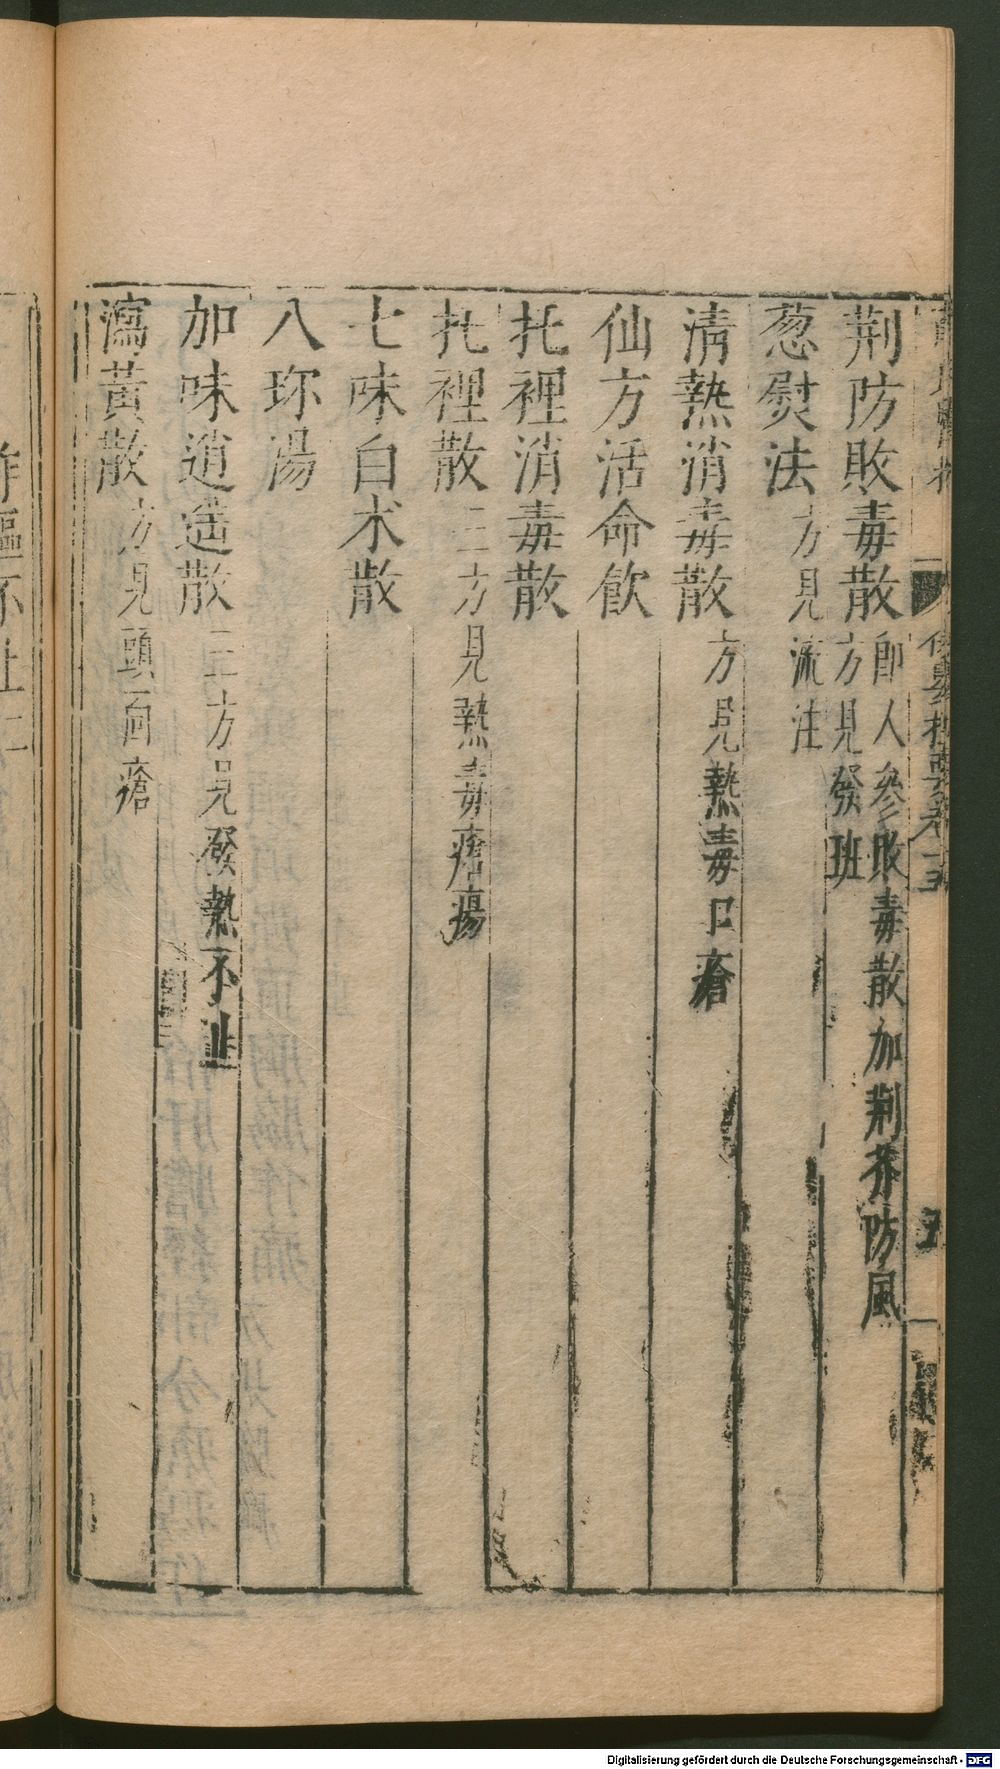 荆防敗毒散 即人參敗毒散加荆芥防風
方見發班
葱熨法 方見流注
清熱消毒散 方見熱毒口瘡
仙方活命飲
托裡消毒散
托裡散 三方見熱毒瘡瘍
七味白术散
八珎湯
加味逍遥散 三方見發熱不止
瀉黃散 方見頭面瘡
Digitalisierung gefördert durch die Deutsche Forschungsgemeinschaft - DFG